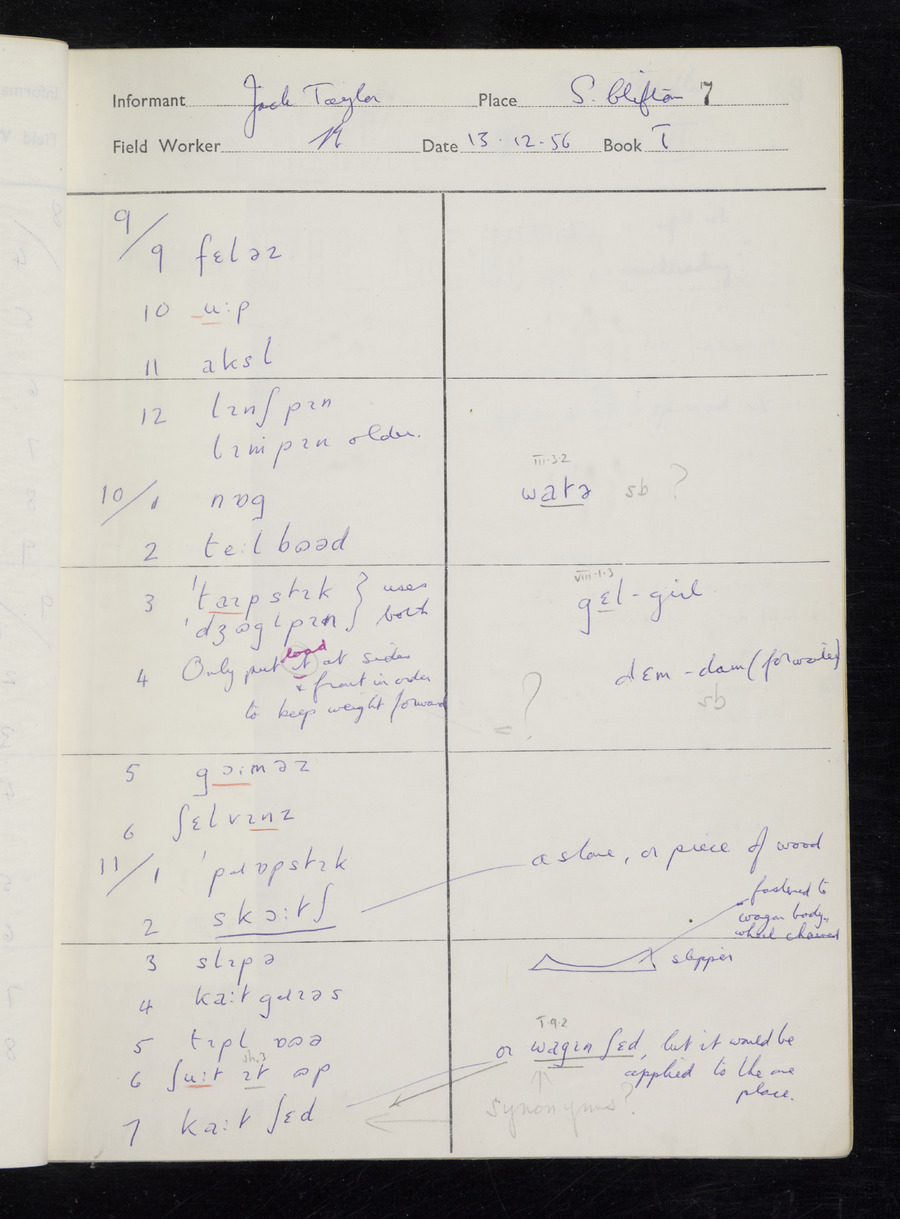 Informant Jack Taylor Place S. Clifton 7
Field Worker Date 13.12.56 Book I
9/9 fɛləz
10 u:p
11 aksl
12 lɪnʃ pɪn
lɪm pɪn older.
10/1 nɒg
2 te:l bɔəd
3 'taɪpstɪk } uses
'dʒɒglpɪn } both
4 Only put it at sides
load
& front in order
to keep weight forward
5 gɔ:məz
6 ʃɛlvɪnz
11/1 'pɹɒpstɪk
2 skɔ:tʃ
3 slɪpə
4 ka:t gɹɪəs
5 tɪpl ɒəə
6 ʃu:t ɪt ʊp
sh.3
7 ka:t ʃɛd
III.3.2
watə sb ?
VIII.1.3
gɛl - girl
dɛm - dam (for water)
sb
= ?
a stone, or piece of wood
fastened to
wagon body,
wheel chained
slipper
I.9.2
or wagɪn ʃɛd, but it would be
applied to the one
place.
synonyms?